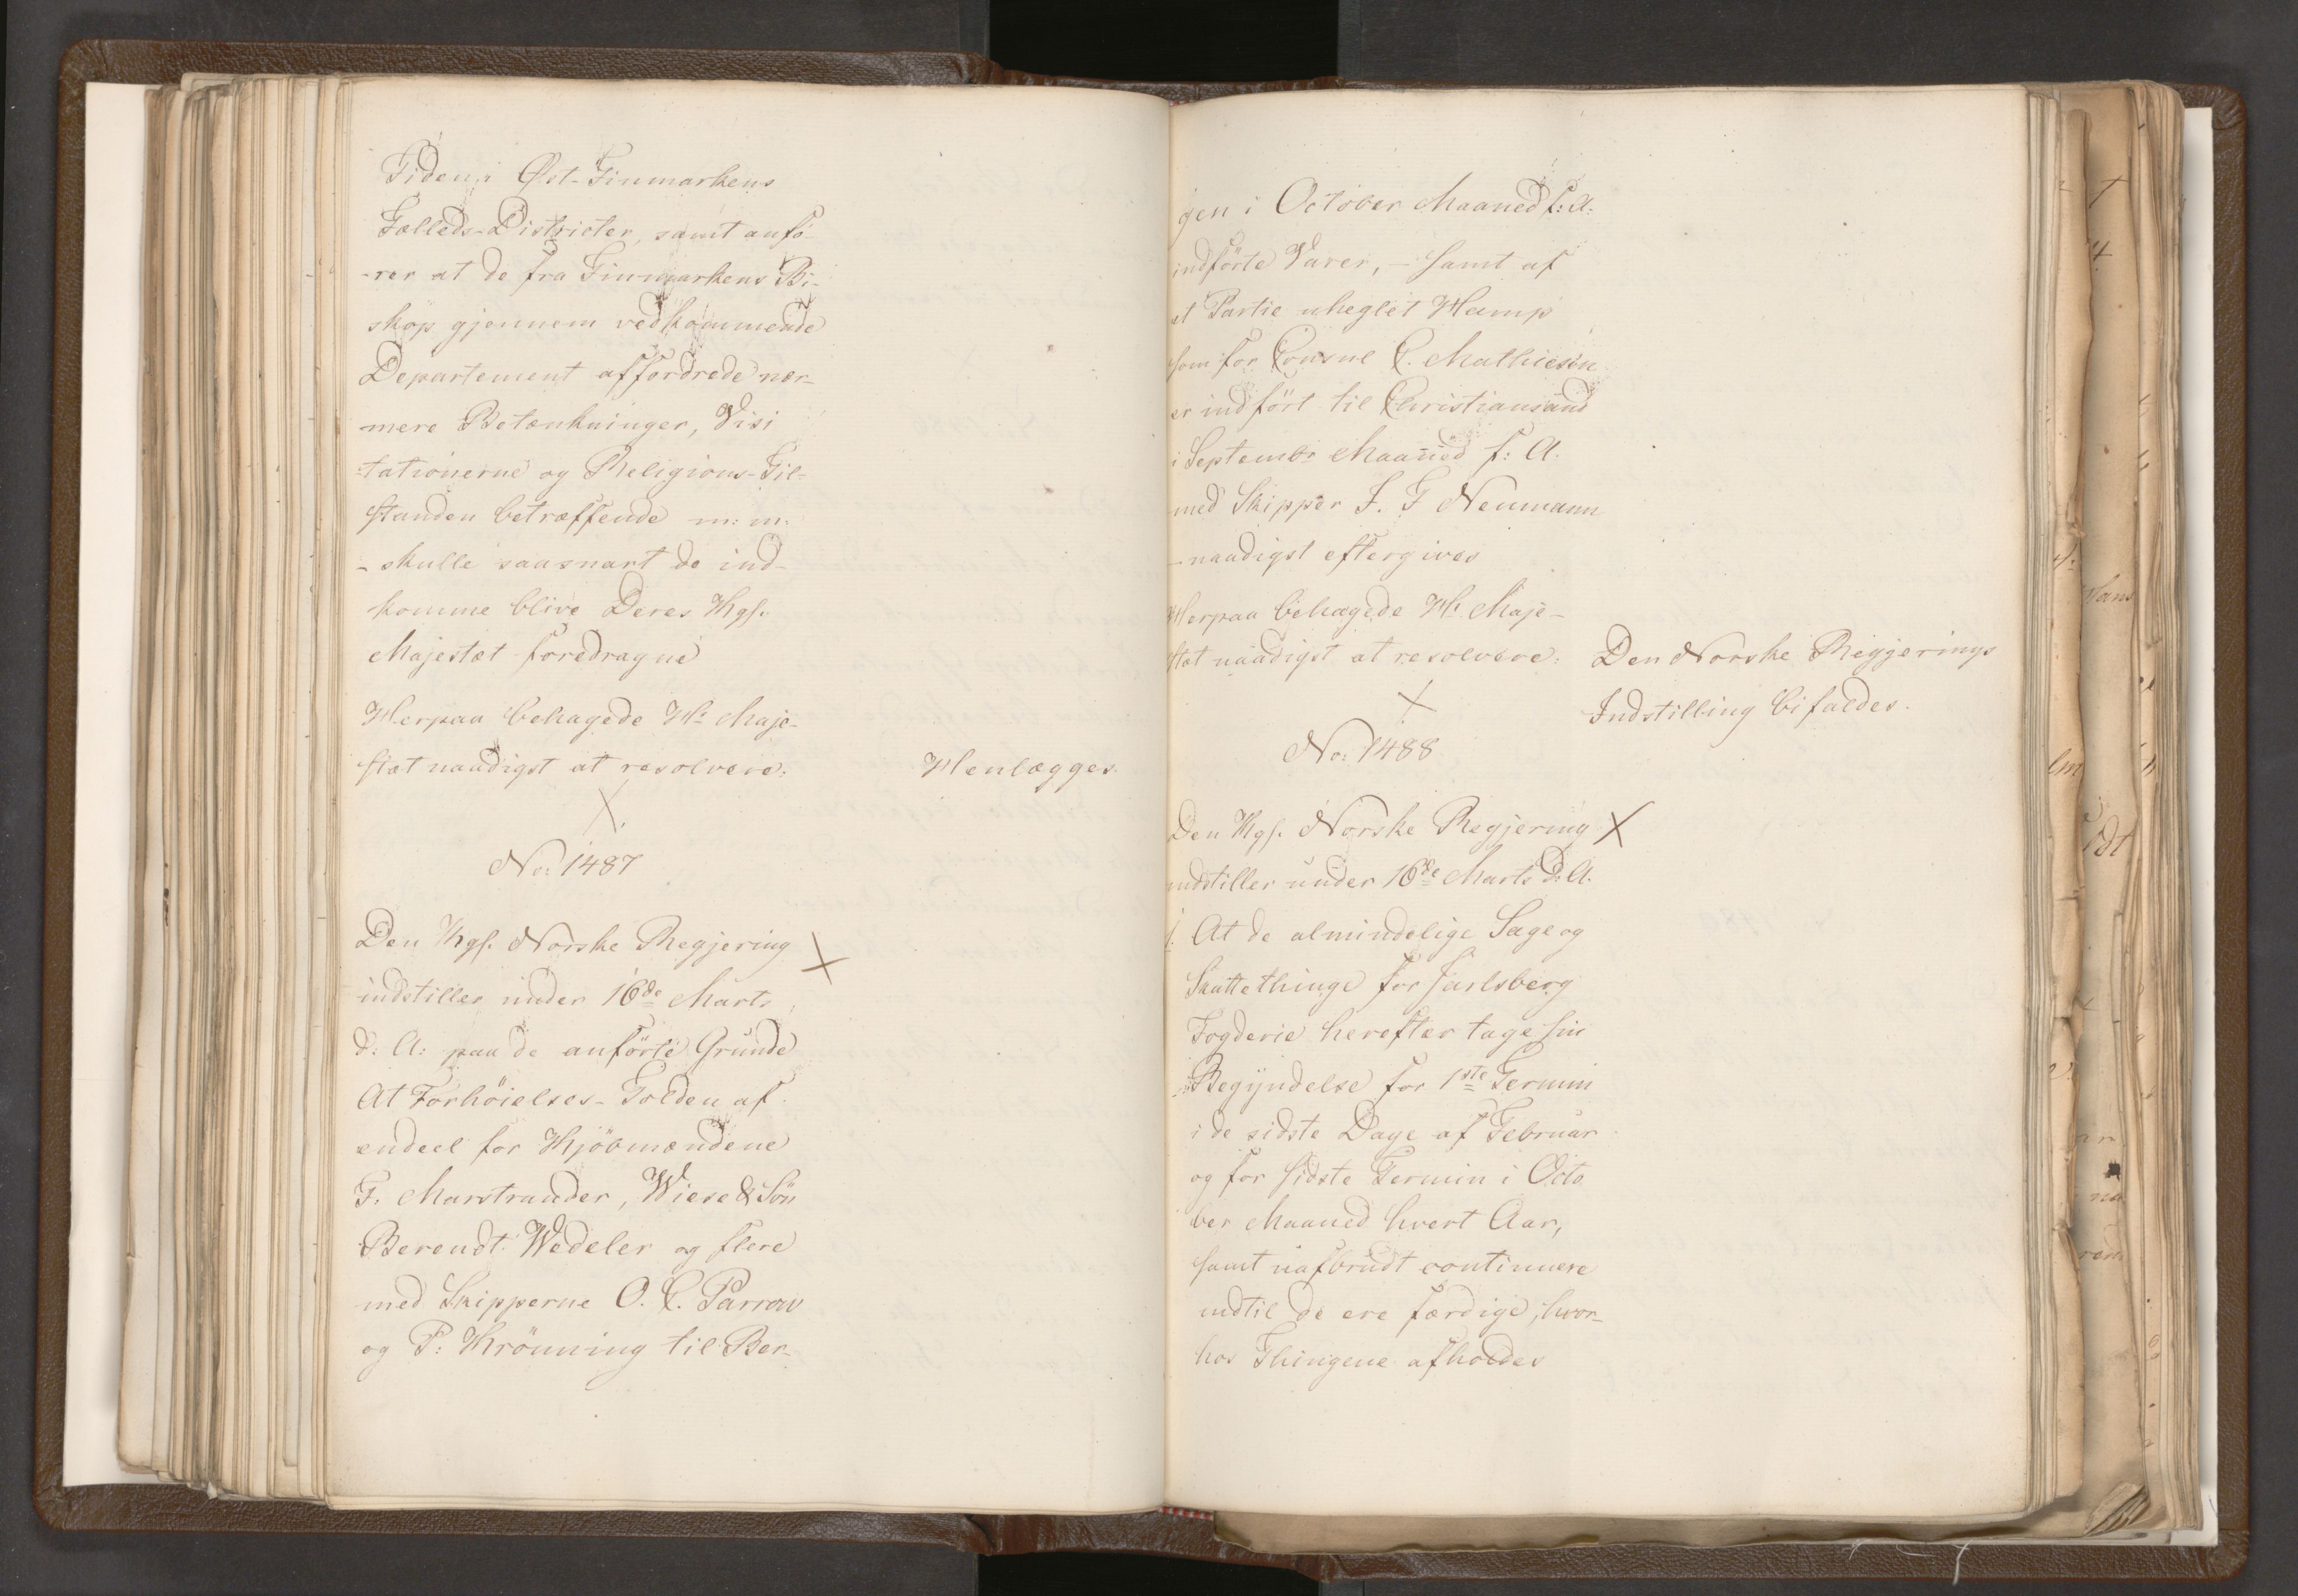 Tiden i Øst-Finmarkens
Fælleds-Districter, samt anfö-
-rer at de fra Finmarkens Bi-
skop gjennem vedkommende
Departement affordrede nær-
mere Betænkninger, Visi
-tationerne og Religions-Til-
standen betræffende m: m:
- skulle saasnart de ind-
komme blive Deres Kgl.
Majestæt foredragne
Herpaa behagede Hs Maje-
stæt naadigst at resolvere:
Henlægges.
X
No: 1487
Den Kgl. Norske Regjering X
indstiller under 16de Marts
d: A: paa de anförte Grunde
At Forhöielses-Tolden af
endeel for Kjöbmændene
F. Marstrander, Wiese & Sön
Berendt Wedeler og flere
med Skipperne O. C. Parrow
og P: Krönning til Ber-
gen i October Maaned f: A:
indförte Varer, - samt af
et Partie uheglet Hamp
som for Consul C. Mathiesen
er indfört til Christiansand
i Septembr Maaned f: A.
med Skipper J. F Neumann
- naadigst eftergives
Herpaa behagede Hs Maje-
stæt naadigst at resolvere:
Den Norske Regjerings
Indstilling bifaldes.
X
No: 1488
Den Kgl. Norske Regjering X
indstiller under 16de Marts d: A.
1. At de almindelige Sage og
Skattethinge for Jarlsberg
Fogderie herefter tage sin
Begyndelse for 1ste Termin
i de sidste Dage af Februar
og for sidste Termin i Octo
ber Maaned hvert Aar,
samt uafbrudt continuere
indtil de ere færdige; hvor-
hos Thingene afholdes